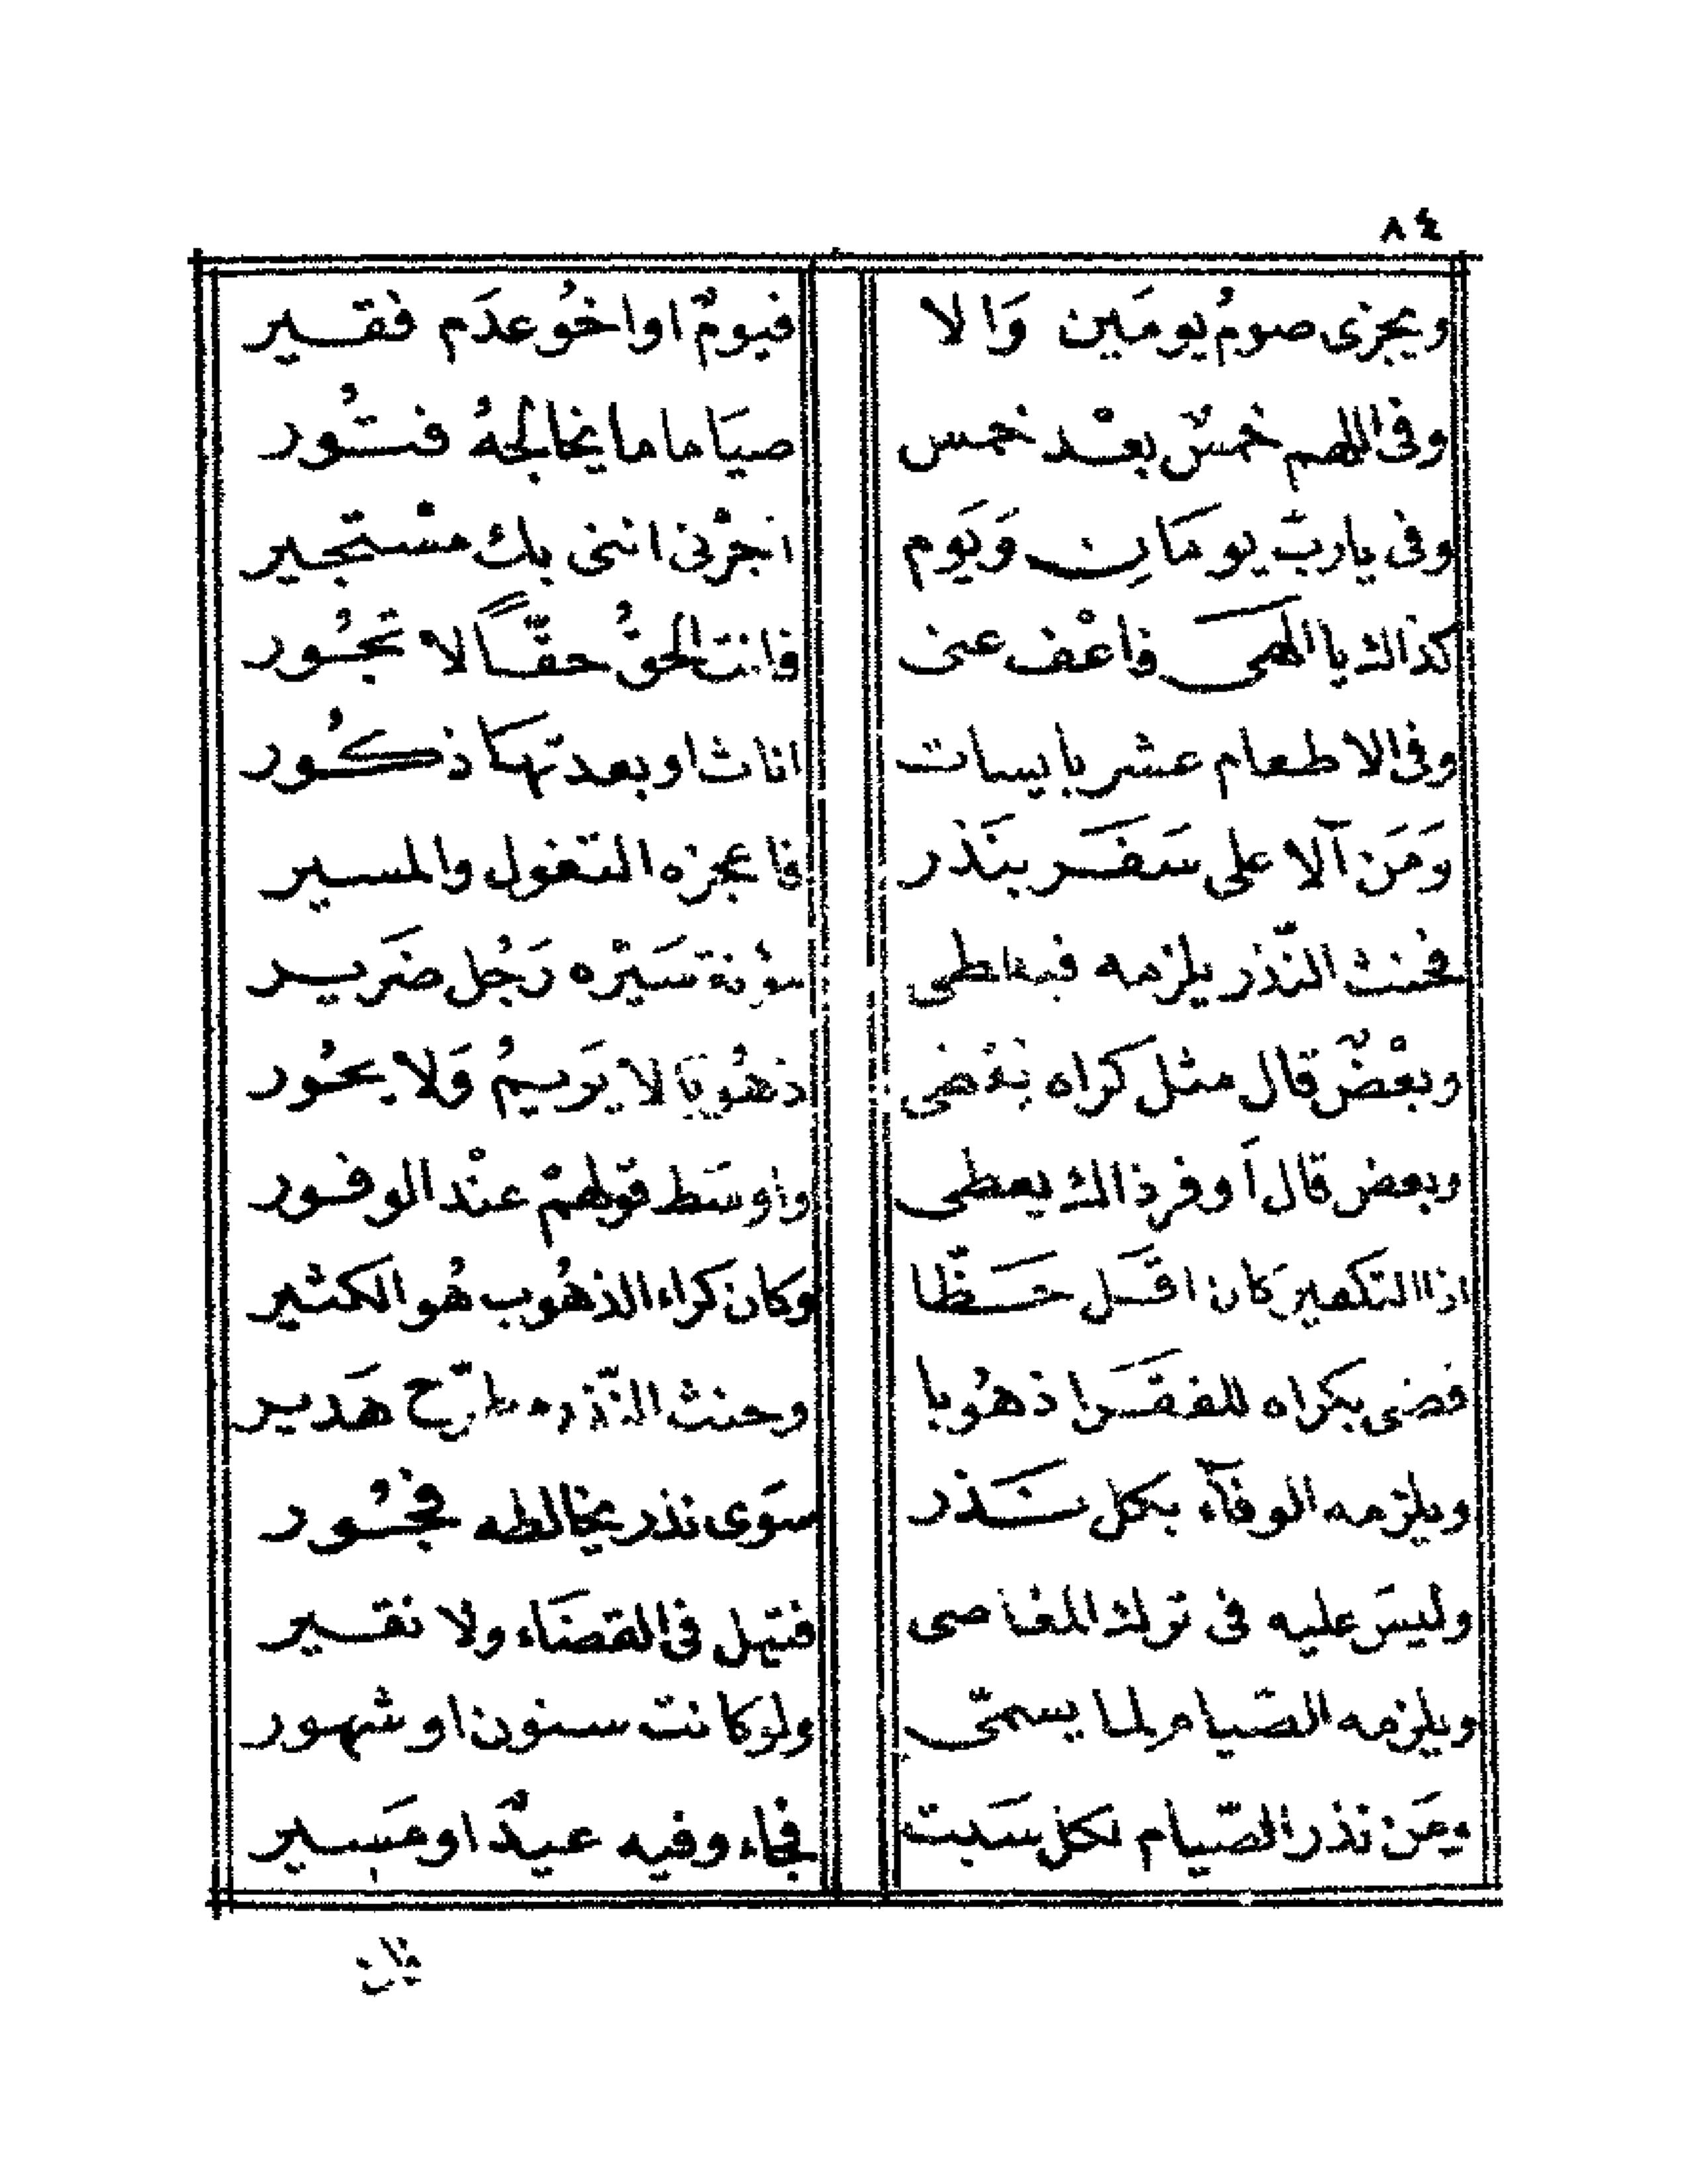 ٨٤
ويجزى صومُ يومَين وَالا فيومٌ اواخُو عدَم فقير
وفى اللهم خمسٌ بعْد خمس صيَاما ما يخالجهُ فتُور
وفى يارب يومَانِ وَيَوم اجرْنى اننى بك مسْتجير
كذاك يا الهَى فاعْف عنى فانت الحقُ حقّاً لا تجُور
وفى الاطعام عشر بايسات اناث او بعدتهَا ذكُور
وَمَن آلا على سَفَر بنَذر فاعجزه التغول والمسير
فحنث النّذر يلزمه فيعطى مؤنة سَيْره رَجُل ضَرير
وبعْضٌ قال مثل كراه يقضى ذهُوبا لا يَريمُ وَلا يحُور
وبعض قال اَوفر ذاك يعطى واوسَط قولهمْ عنْد الوفور
اذا التكفير كان اقَل حَظّا وكان كراء الذهُوب هُو الكثير
فضى بكراه للفقَرا ذهُوبا وحنث النّذر مطرّح هَدير
ويلزمه الوفآء بكل نَذر سوَى نذر يخالطه فجُور
وليسَ عليه فى ترك المغاصى فتيل فى القضَاء ولا نقير
ويلزمه الصّيام لِما يسمّى ولو كانت سنون او شهور
ومَن نذر الصّيام لكل سَبت فجاء وفيه عيدٌ او مَسير